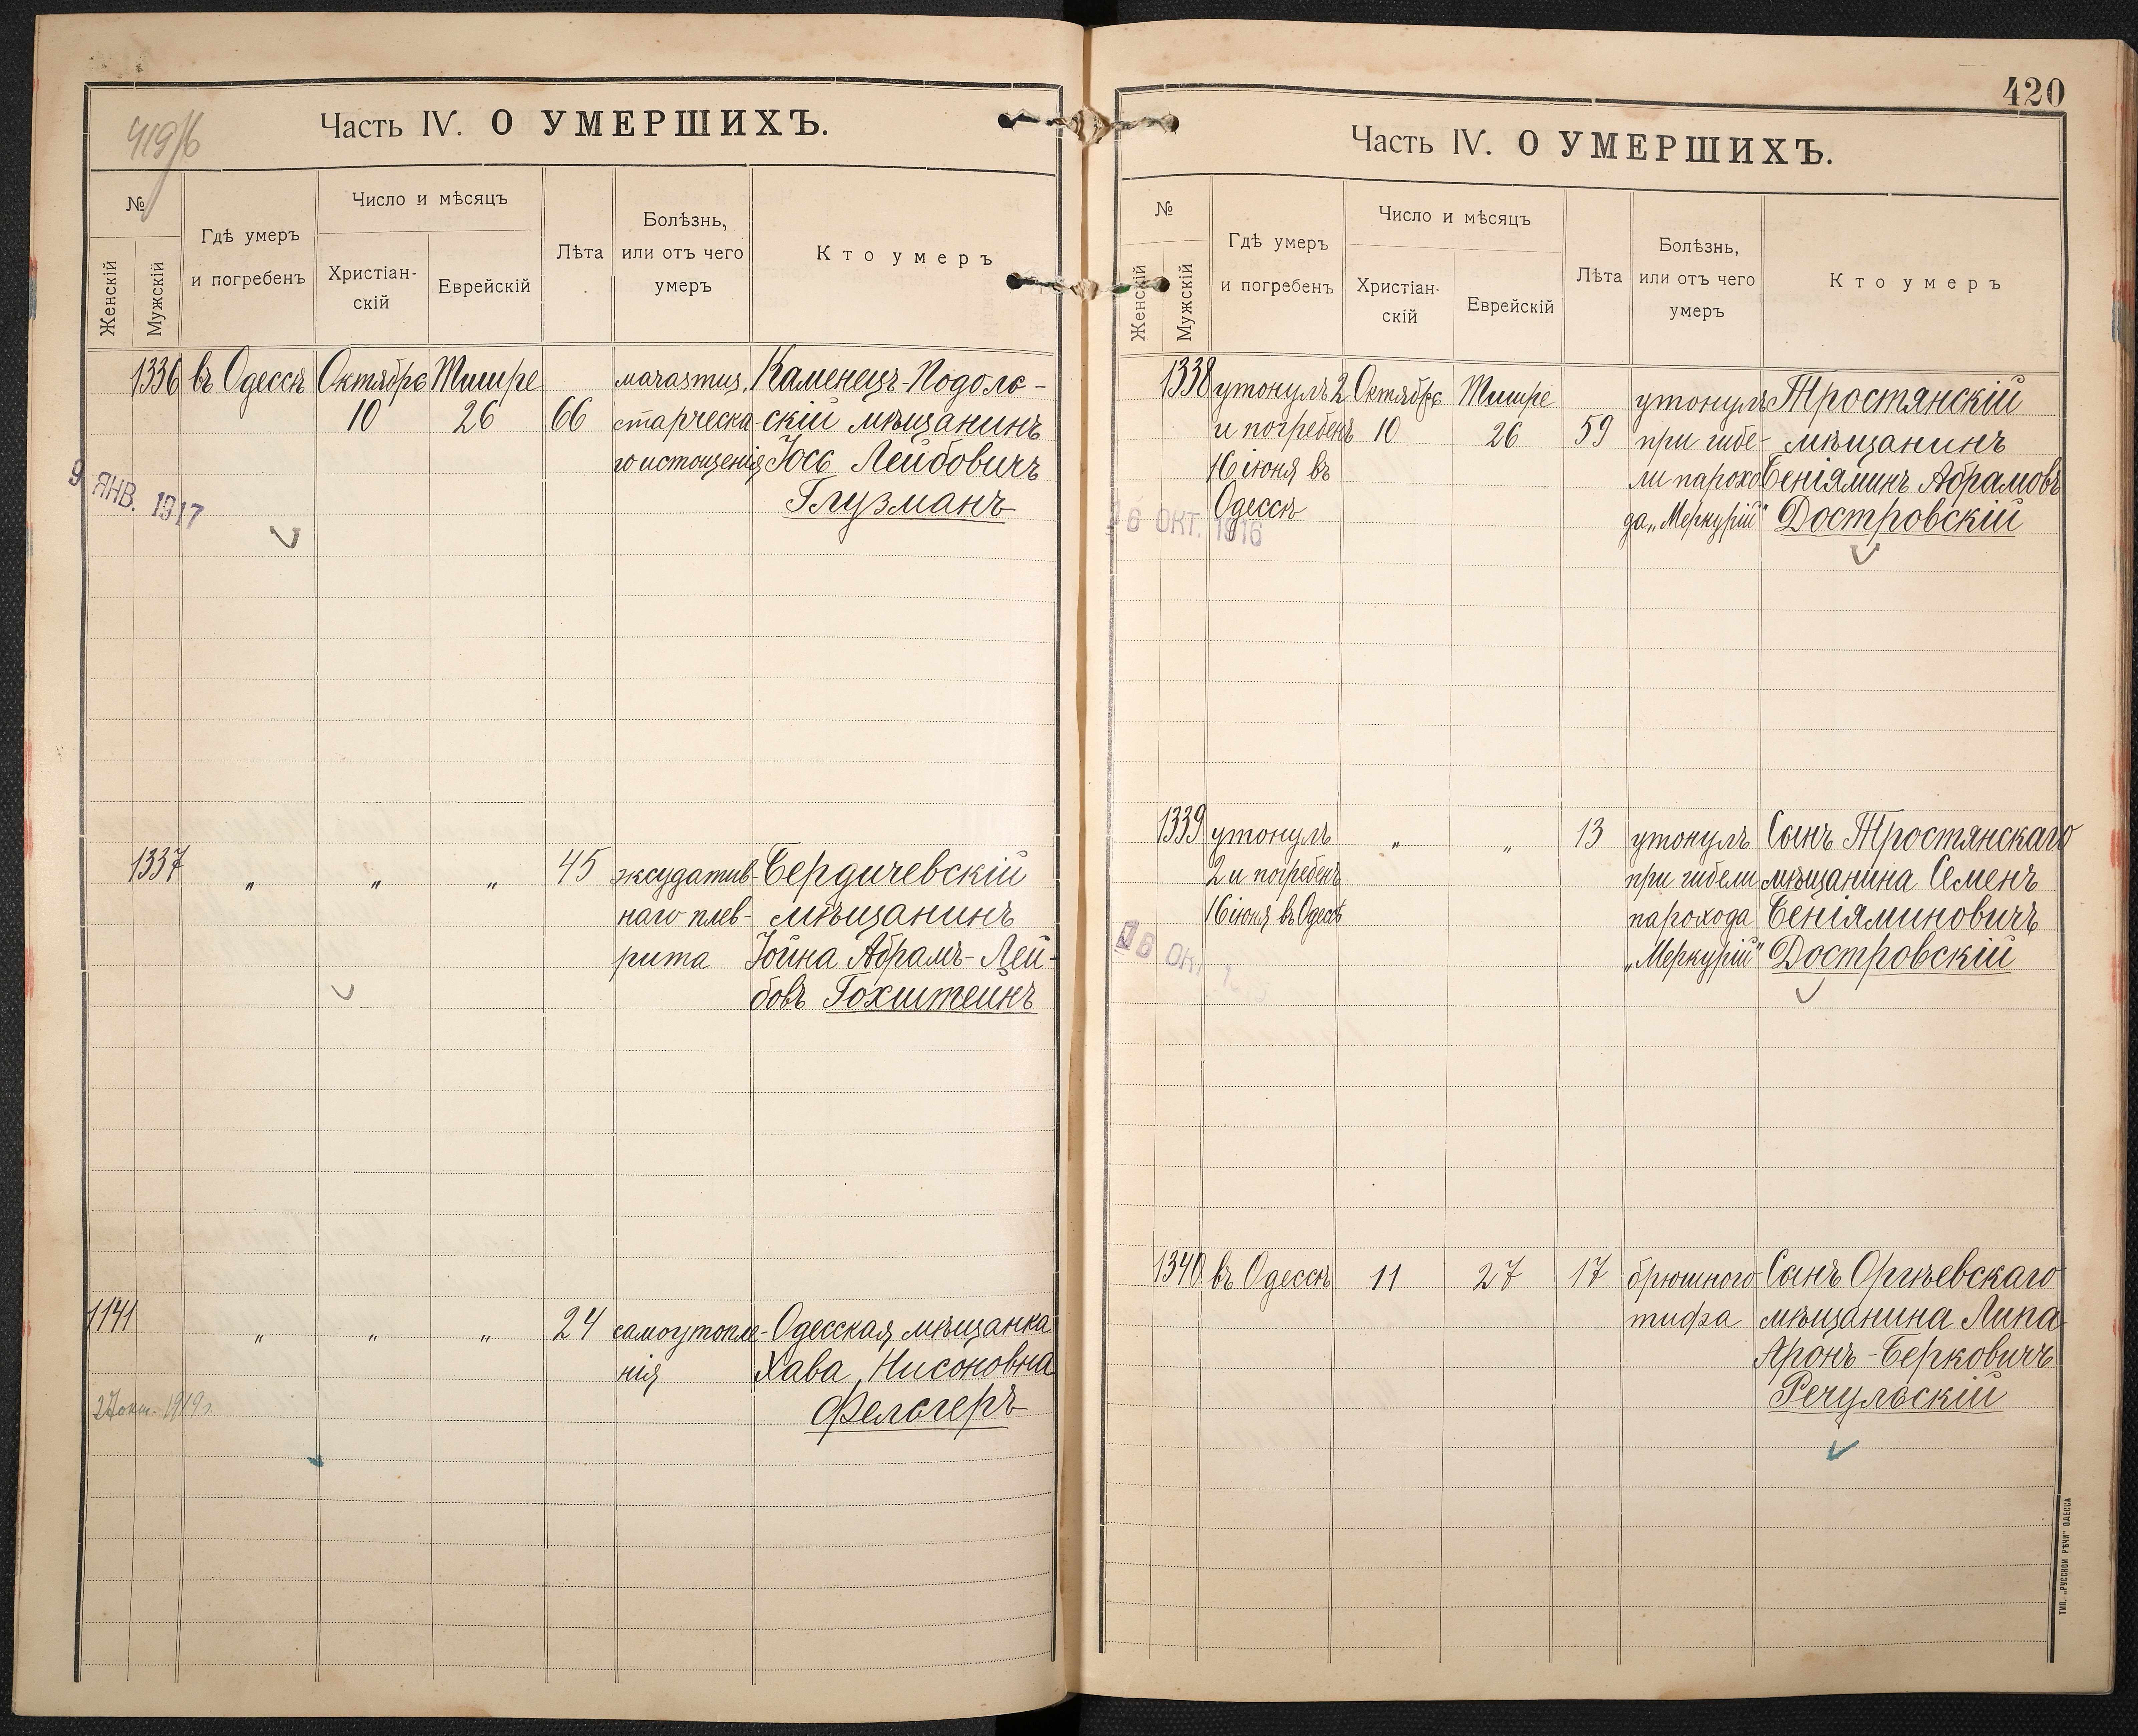 419/б
Часть IV. О УМЕРШИХЪ.
№
Женскій
Мужскій
Гдѣ умеръ
и погребенъ
Число и мѣсяцъ
Христіан-
скій
Еврейскій
Лѣта
Болѣзнь,
или отъ чего
умеръ
Кто умеръ
1336 въ Одессѣ Октябрь Тишре marasmus, Каменецъ-Подоль-
10 26 66 старческа- скій мѣщанинъ
го истощенія Іось Лейбовичъ
Глузманъ
9 ЯНВ. 1917
1337 „ „ „ 45 эксудатив- Бердичевскій
наго плев- мѣщанинъ
рита Іойна Абрамъ-Лей-
бовъ Гохштейнъ
1141 „ „ „ 24 самоутопле- Одесская мѣщанка
нія Хава Нисоновна
Фельгеръ
окт. 1919 г.
420
Часть IV. О УМЕРШИХЪ.
№
Женскій
Мужскій
Гдѣ умеръ
и погребенъ
Число и мѣсяцъ
Христіан-
скій
Еврейскій
Лѣта
Болѣзнь,
или отъ чего
умеръ
Кто умеръ
1338 утонулъ 2 Октябрь Тишре утонулъ Тростянскій
и погребенъ 10 26 59 при гибе- мѣщанинъ
16 іюня въ ли парохо- Беніяминъ Абрамовъ
Одессѣ да „Меркурій" Достровскій
16 ОКТ. 1916
1339 утонулъ „ „ 13 утонулъ Сынъ Тростянскаго
2 и погребенъ при гибели мѣщанина Семенъ
16 іюня въ Одессѣ парохода Беніяминовичъ
„Меркурій" Достровскій
16 ОКТ
1340 въ Одессѣ 11 27 17 брюшного Сынъ Оргѣевскаго
тифа мѣщанина Липа
Аронъ-Берковичъ
Речульскій
ТИП. „РУССКОЙ РѢЧИ" ОДЕССА